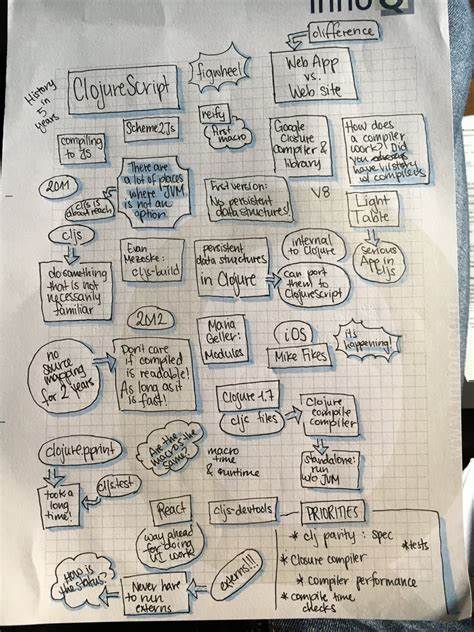 innoQ
difference
History
in
5
years
ClojureScript
figwheel
Web App
vs.
Web site
compiling
to JS
Scheme2Js
reify
first
macro
Google
Closure
compiler &
library
How does
a compiler
work? Did
you
have history
w/ compilers
2011
cljs is
about reach
There are
a lot of places
where JVM
is not an
option
First version:
No persistent
data structures!
V8
Light
Table
cljs
do something
that is not
necessarily
familiar
Evan
Mezeske:
cljs-build
persistent
data structures
in Clojure
internal
to Clojure
can port
them to
ClojureScript
Serious
App in
Cljs
2012
no
source
mapping
for 2 years
Don't care
if compiled
is readable!
As long as it
is fast!
Maria
Geller:
Modules
iOS
Mike Fikes
it's
happening!
Clojure 1.7
cljc files
Clojure
compile
compiler
clojure.pprint
Are the
macros the
same?
macro
time
& runtime
standalone:
run
w/o JVM
took a
long
time!
clj.test
React
way ahead
for doing
UI work
cljs-devtools
PRIORITIES
* clj parity : spec
* tests
* Closure compiler
* compiler performance
* compile time
checks
How is
the status?
Never have
to run
externs
externs!!!